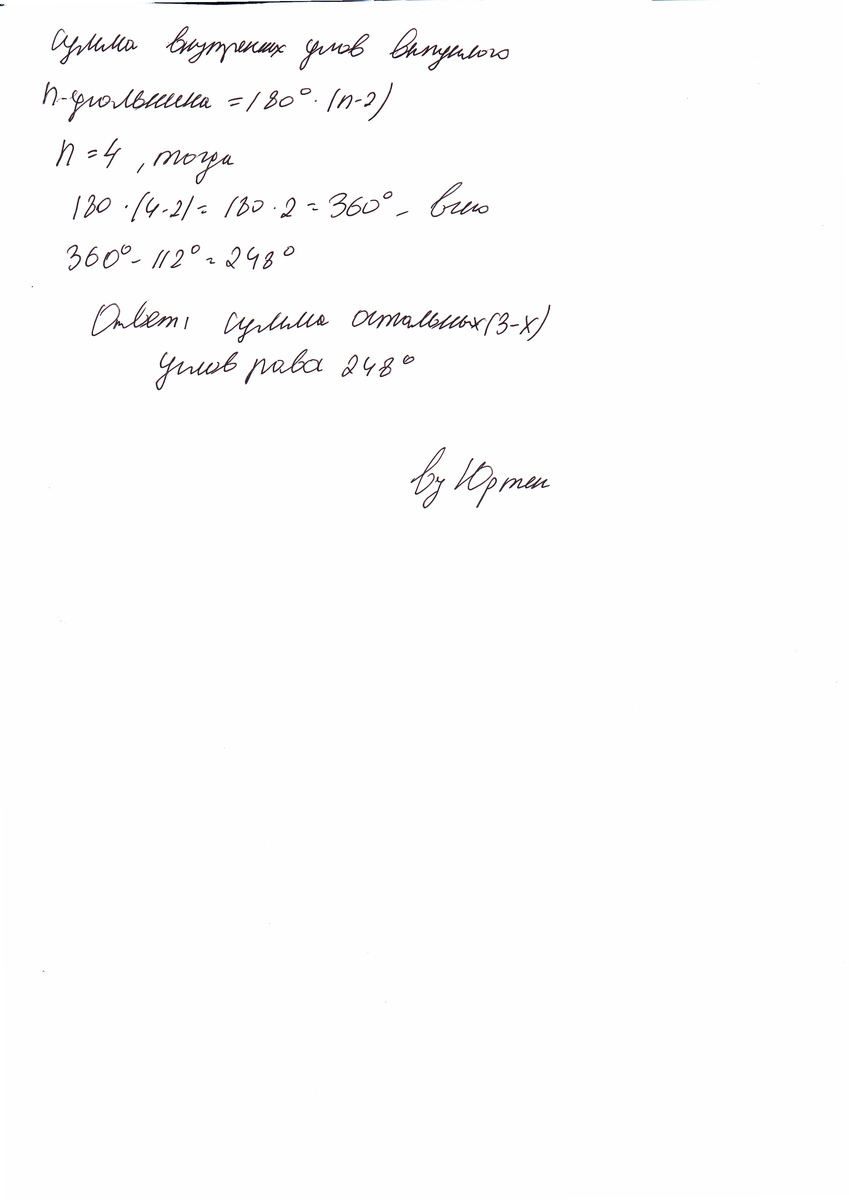 Сумма внутрених углов выпуклого
n-угольника = 180° · (n-2)
n = 4 , тогда
180 · (4-2) = 180 · 2 = 360° - всего
360° - 112° = 248°
Ответ: сумма остальных (3-х)
углов рава 248°
by Юртен